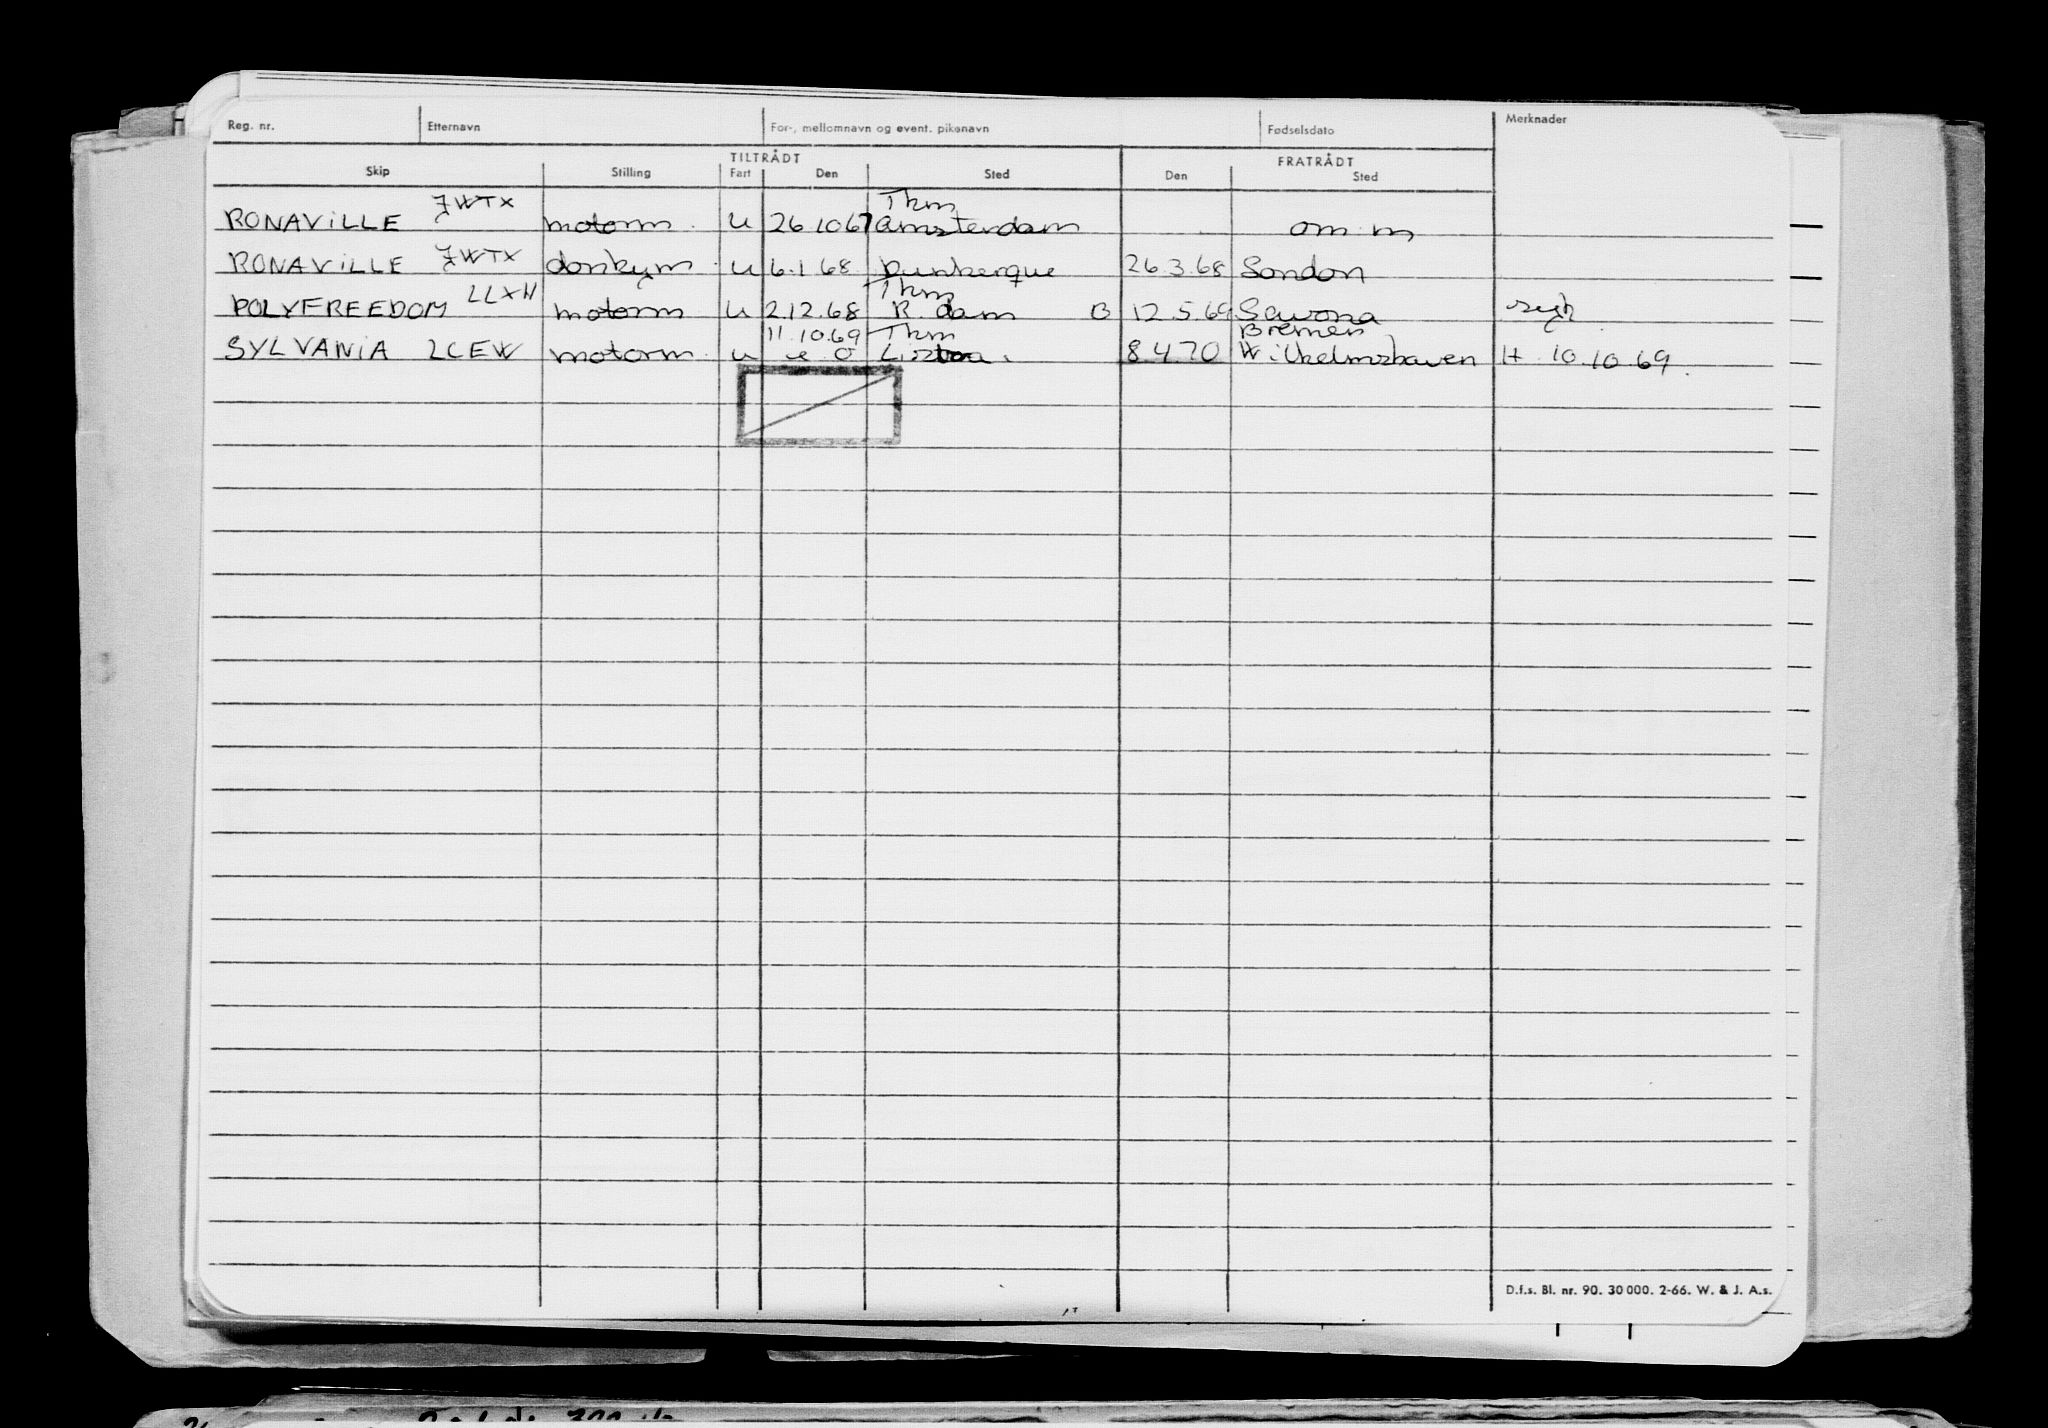 Reg. nr. Etternavn For-, mellomnavn og event. pikenavn Fødselsdato Merknader
TILTRÅDT FRATRÅDT
Skip Stilling Fart Den Sted Den Sted
RONAVILLE JWTX motorm. u 26 10 67 Thm Amsterdam om m
RONAVILLE JWTX donkym. u 6.1.68 Dunkerque 26.3.68 London
POLYFREEDOM LLXH motorm u 2.12.68 Thm R.dam B 12.5.69 Savona
SYLVANIA LCEW motorm. u 11.10.69 Thm Lisboa. 8.4.70 Bremen Wilhelmshaven H 10.10.69.
D.f.s. Bl. nr. 90. 30 000. 2-66. W. & J. A.s.